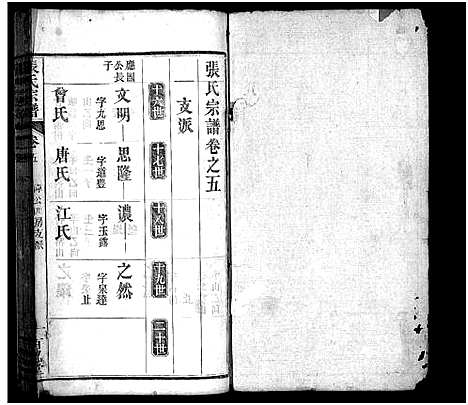 張氏宗譜卷之五
一支派
十六世 十七世 十八世 十九世 二十世
應國公長子
文明 思隆 濃 之然
字九恩 字道豐 字玉露 字泉達 止
曾氏 唐氏 江氏
張氏宗譜 卷五